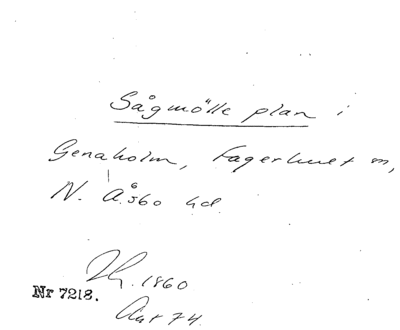 Sågmölle plan i
Genaholm, Fagerhult m,
N. Åsbo hd.
1860
Nr 7218.
74.